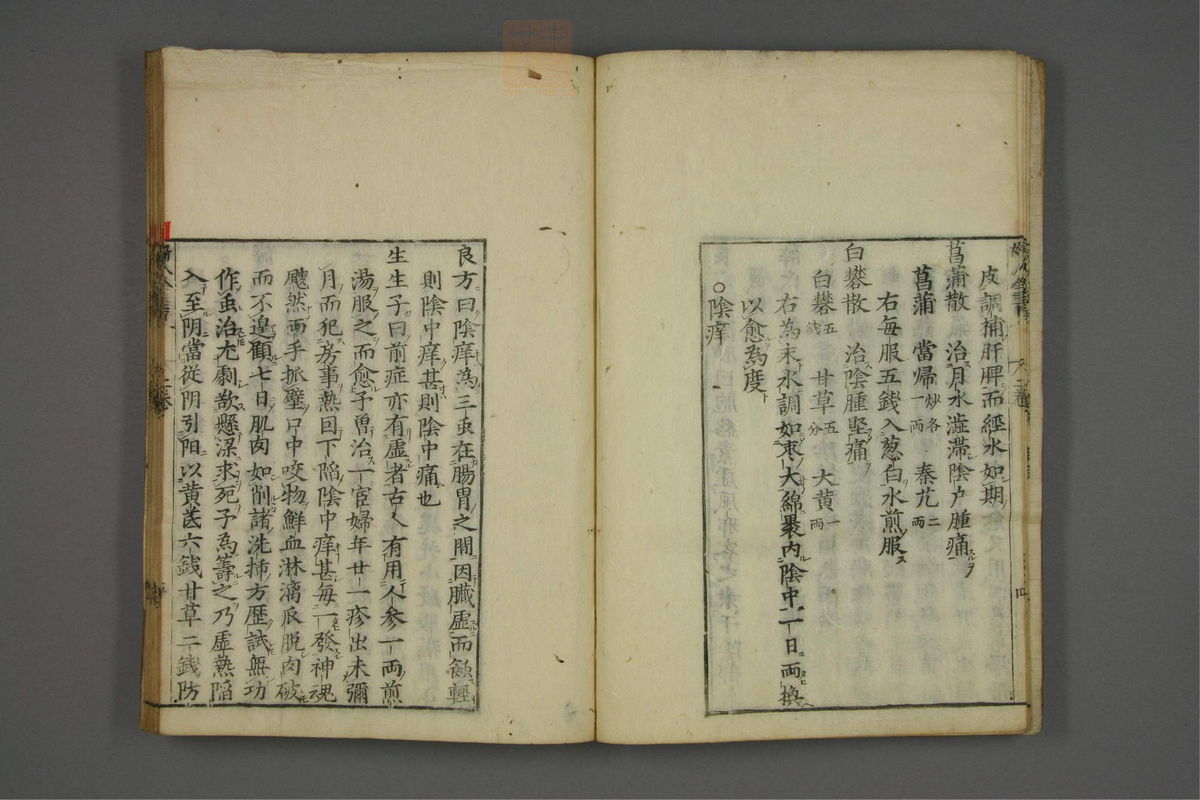 皮調補肝脾而經水如期
菖蒲散　治月水澁滯陰户腫痛
菖蒲　當帰炒各一兩　秦艽二兩
右每服五錢入葱白水煎服
白礬散　治陰腫堅痛
白礬五錢　甘草五分　大黄一兩
右為末水調如枣大綿裹内陰中一日兩換
以愈為度
○陰痒
良方曰陰痒為三虫在腸胃之間因臟虛而蝕輕
則陰中痒甚則陰中痛也
生生子曰前症亦有虛者古人有用人參一兩煎
湯服之而愈予曽治一宦婦年廿一疹出未彌
月而犯房事熱回下陷陰中痒甚每一發神魂
飃然兩手抓壁口中咬物鮮血淋漓爪脱肉破
而不遑顧七日肌肉如削諸洗揷方歷試無功
作虫治尤劇歆懸梁求死予為籌之乃虛熱陷
入至阴當從阴引阳以黄芪六錢甘草二錢防